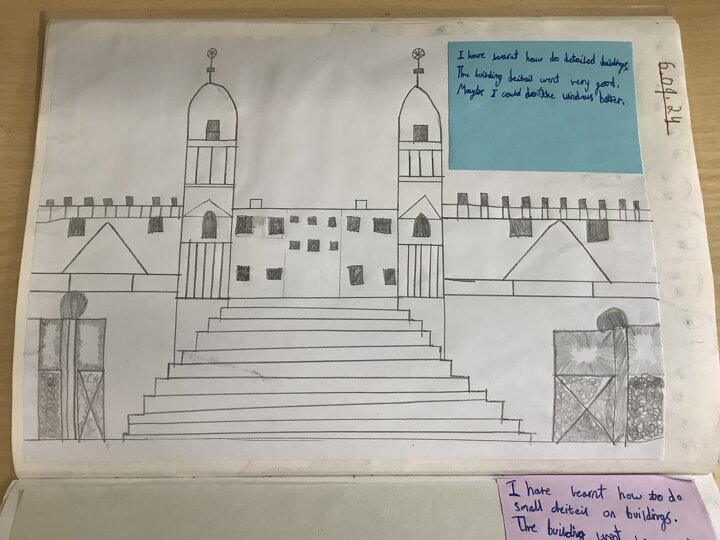 I have learnt how do detailed buildings.
The building deiteil went very good.
Maybe I could do the windows better.
6.09.24
I have learnt how to do
small deiteil on buildings.
The building went